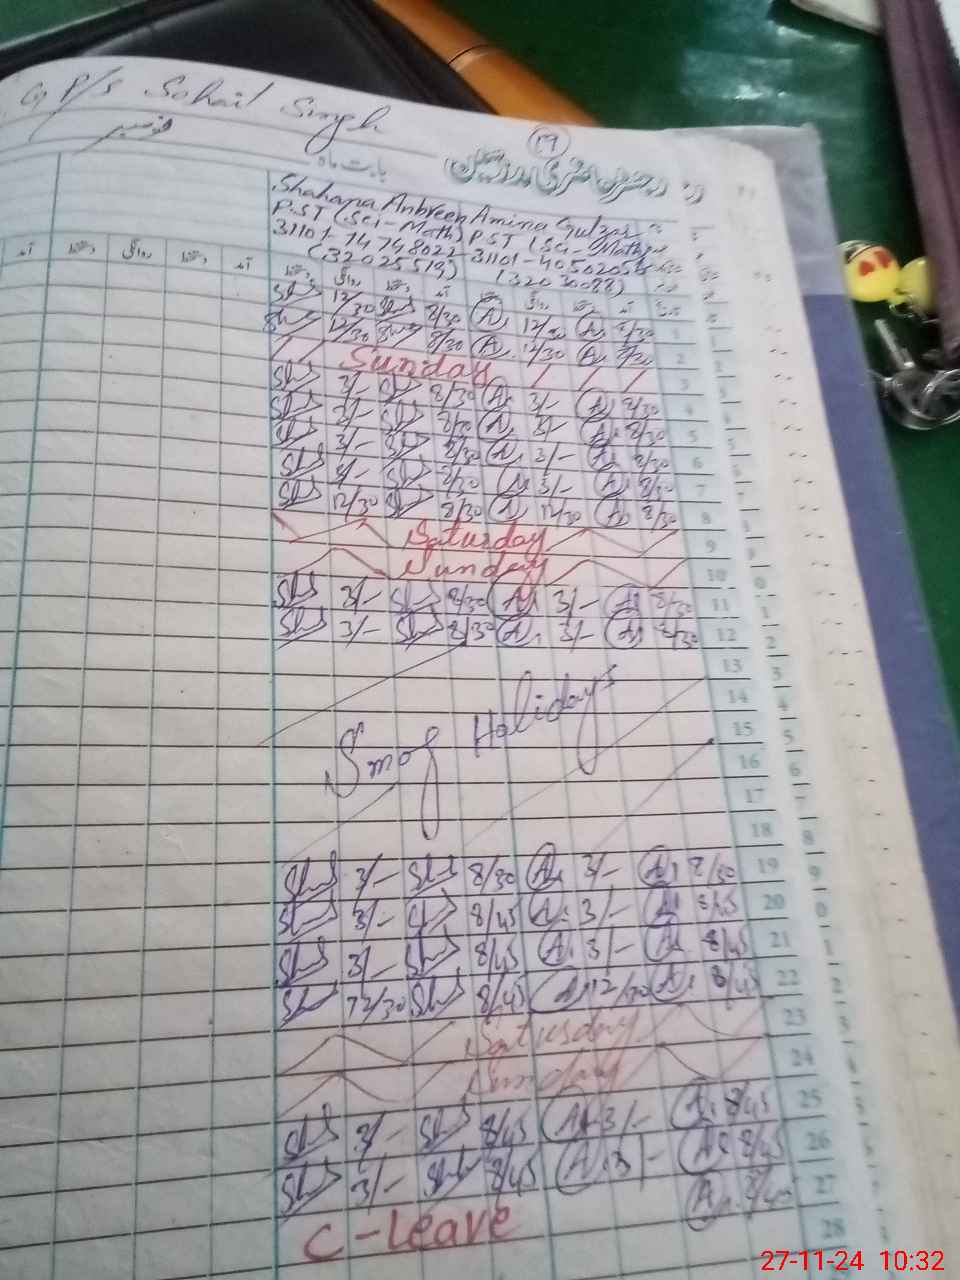 G P/S Sohail Singh
نومبر
19
بابت ماہ
رجسٹر حاضری مدرسین
Shahana Anbreen Amina Gulzar
PST (Sci-Math) PST (Sci-Math)
31101-14748022
(32025519) (32030088)
آمد دستخط روانگی دستخط آمد
Sh 12/30 Sh 8/30 A. 12/30 A. 8/30 1
Sh 12/30 Sh 8/30 A. 12/30 A. 8/30 2
Sunday 3
Sh 3/- Sh 8/30 A. 3/- A. 8/30 4
Sh 3/- Sh 8/30 A. 3/- A. 8/30 5
Sh 3/- Sh 8/30 A. 3/- A. 8/30 6
Sh 3/- Sh 8/30 A. 3/- A. 8/30 7
Sh 12/30 Sh 8/30 A. 12/30 A. 8/30 8
Saturday 9
Sunday 10
Sh 3/- Sh 8/30 A. 3/- A. 8/30 11
Sh 3/- Sh 8/30 A. 3/- A. 8/30 12
13
14
Smog Holidays 15
16
17
18
Sh 3/- Sh 8/30 A. 3/- A. 8/30 19
Sh 3/- Sh 8/45 A. 3/- A. 8/45 20
Sh 3/- Sh 8/45 A. 3/- A. 8/45 21
Sh 12/30 Sh 8/45 A. 12/30 A. 8/45 22
Saturday 23
Sunday 24
Sh 3/- Sh 8/45 A. 3/- A. 8/45 25
Sh 3/- Sh 8/45 A. 3/- A. 8/45 26
C-Leave A. 8/40 27
28
27-11-24 10:32